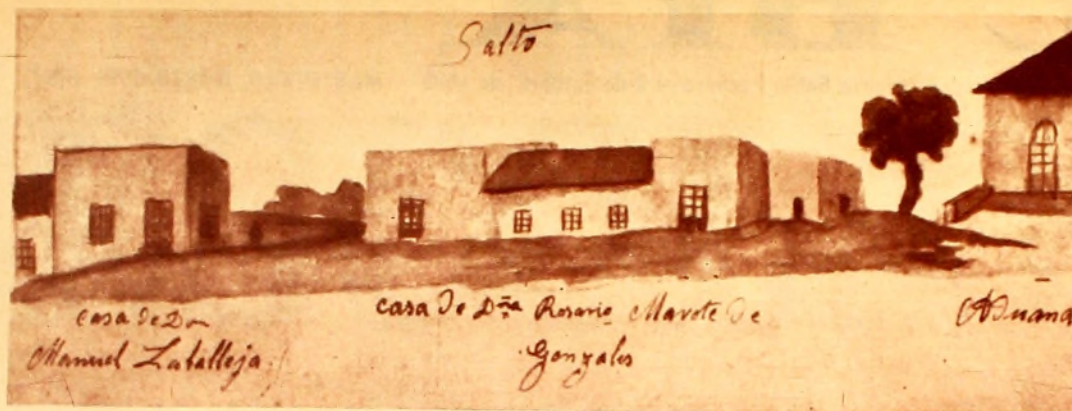 Salto
casa de Don
Manuel Laballeja
casa de Dña Rosario Marote de
Gonzales
Aduana